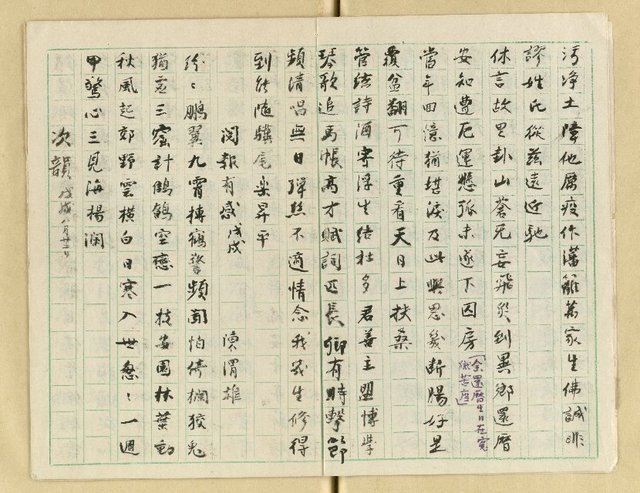 污淨土降他厲疫作藩籬萬家生佛誠非
謬姓氏從茲遠近馳
休言故里卦山蒼死妄飛災到異鄉還曆
安知遭厄運懸弧未遂下囚房(余還曆生日在冤獄苦度)
當年回憶猶堪淚及此興思幾斷腸好是
覆盆翻可待重看天日上扶桑
管絃詩酒寄浮生結社多君善主盟博學
琴歌追馬帳高才賦詞正長卿有時擊節
頻清唱無日彈絲不適情念我几生修得
到能隨驥尾樂昇平
閱報有感 戊戌 陳渭雄
紛々鵬翼九霄摶鶴警頻聞怕倚欄狡兔
猶急三窟計鶺鴒空戀一枝安園林葉動
秋風起郊野雲橫白日寒入世悠々一週
甲驚心三見海揚瀾
次韻 戊戌八月廿二日